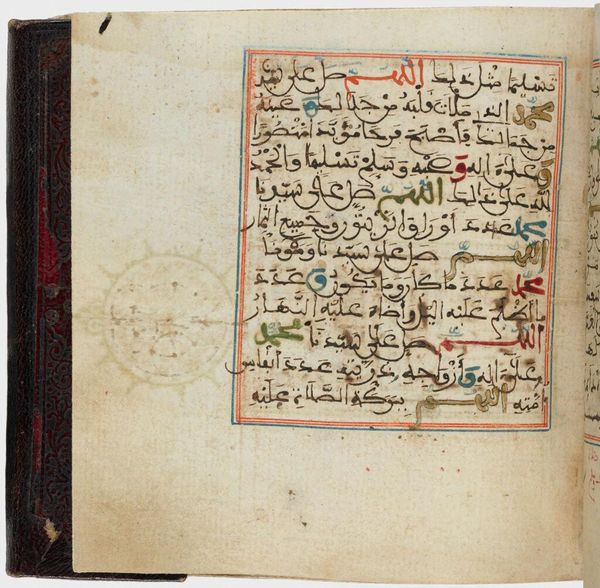 تسليما مثل ذلك اللهم صل على سيدنا
محمد الذي ملأت قلبه من جلالك وعينه
من جمالك فأصبح فرحا مؤيدا منصورا
وعلى اله وصحبه وسلم تسليما والحمد
لله على ذلك اللهم صل على سيدنا
محمد عدد أوراق الزيتون وجميع الثمار
اللهم صل على سيدنا ومولانا
محمد عدد ما كان وما يكون وعدد
ما أظلم عليه اليل وأضاء عليه النهار
اللهم صل على سيدنا محمد
وعلى اله وأزواجه وذريته عدد أنفاس
أمته اللهم ببركة الصلاة عليه